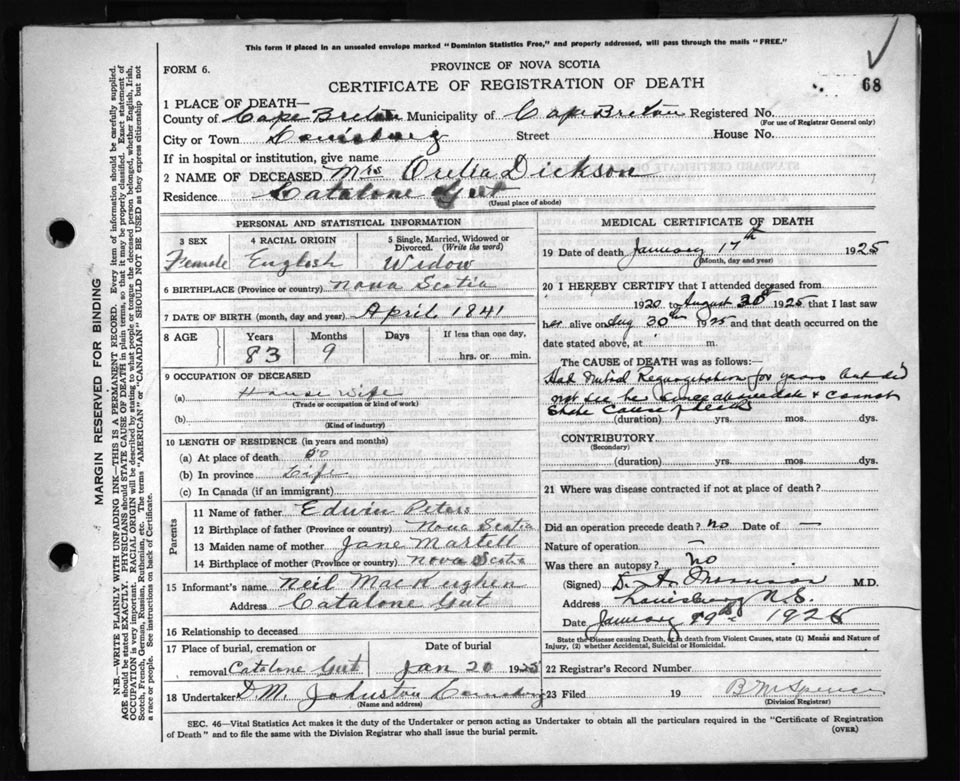 This form if placed in an unsealed envelope marked "Dominion Statistics Free," and properly addressed, will pass through the mails "FREE."
FORM 6.
PROVINCE OF NOVA SCOTIA
CERTIFICATE OF REGISTRATION OF DEATH
68
1 PLACE OF DEATH—
County of Cape Breton Municipality of Cape Breton Registered No.
(For use of Registrar General only)
City or Town Louisburg Street House No.
If in hospital or institution, give name
2 NAME OF DECEASED Mrs Orella Dickson
Residence Catalone Gut
(Usual place of abode)
PERSONAL AND STATISTICAL INFORMATION
3 SEX
Female
4 RACIAL ORIGIN
English
5 Single, Married, Widowed or Divorced. (Write the word)
Widow
6 BIRTHPLACE (Province or country) Nova Scotia
7 DATE OF BIRTH (month, day and year) April 1841
8 AGE Years Months Days If less than one day,
83 9 hrs. or min.
9 OCCUPATION OF DECEASED
(a) House wife
(Trade or occupation or kind of work)
(b)
(Kind of industry)
10 LENGTH OF RESIDENCE (in years and months)
(a) At place of death
(b) In province Life
(c) In Canada (if an immigrant)
Parents
11 Name of father Edwin Peters
12 Birthplace of father (Province or country) Nova Scotia
13 Maiden name of mother Jane Martell
14 Birthplace of mother (Province or country) Nova Scotia
15 Informant's name Neil MacKeighen
Address Catalone Gut
16 Relationship to deceased
17 Place of burial, cremation or removal Catalone Gut
Date of burial
Jan 20 1925
18 Undertaker D.M. Johnston Louisburg
(Name and address)
MEDICAL CERTIFICATE OF DEATH
19 Date of death January 17th 1925
(Month, day and year)
20 I HEREBY CERTIFY that I attended deceased from
1920 to August 30th 1925 that I last saw
her alive on Aug 30th 1925 and that death occurred on the
date stated above, at m.
The CAUSE of DEATH was as follows:
Had Mitral Regurgitation for years but did
not see her since above date & cannot
State Cause of Death
(duration) yrs. mos. dys.
CONTRIBUTORY
(Secondary)
(duration) yrs. mos. dys.
21 Where was disease contracted if not at place of death?
Did an operation precede death? no Date of —
Nature of operation —
Was there an autopsy? no
(Signed) M.D.
Address Louisburg N.S.
Date January 19th
State the Disease causing Death, or, in death from Violent Causes, state (1) Means and Nature of Injury, (2) whether Accidental, Suicidal or Homicidal.
22 Registrar's Record Number
23 Filed 19 B M Spencer
(Division Registrar)
SEC. 46—Vital Statistics Act makes it the duty of the Undertaker or person acting as Undertaker to obtain all the particulars required in the "Certificate of Registration
of Death" and to file the same with the Division Registrar who shall issue the burial permit.
(OVER)
MARGIN RESERVED FOR BINDING
N.B.—WRITE PLAINLY WITH UNFADING INK—THIS IS A PERMANENT RECORD. Every item of information should be carefully supplied.
AGE should be stated EXACTLY. PHYSICIANS should STATE CAUSE OF DEATH in plain terms, so that it may be properly classified. Exact statement of
OCCUPATION is very important. RACIAL ORIGIN will be described by stating to what people or tongue the deceased person belonged, whether English, Irish,
Scotch, French, German, Russian, Ruthenian, etc. The terms "AMERICAN" or "CANADIAN" SHOULD NOT BE USED as they express citizenship but not
a race or people. See instructions on back of Certificate.